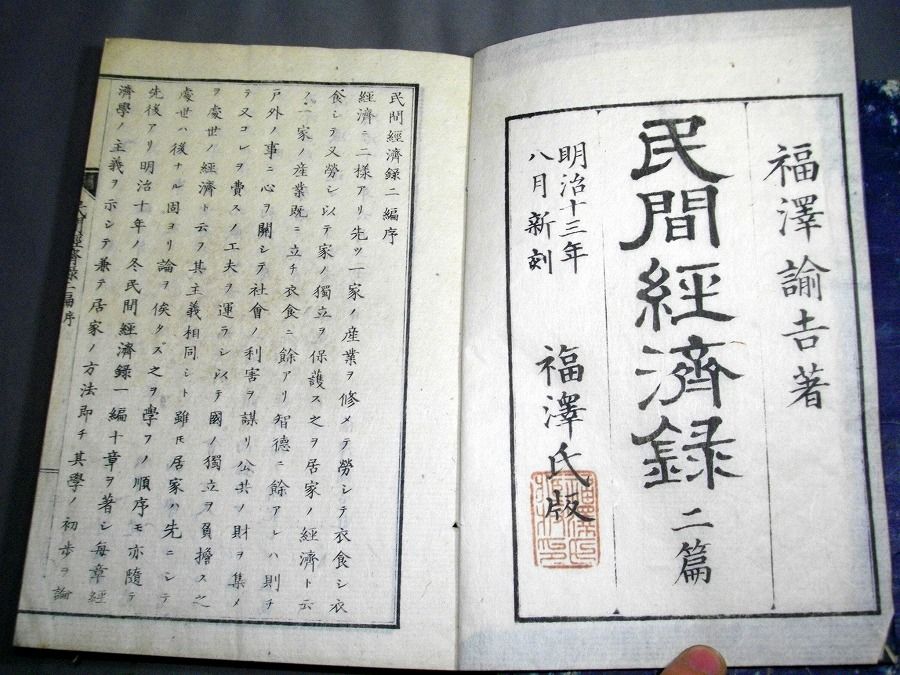 福澤諭吉著
民間經濟録 二篇
明治十三年
八月新刻
福澤氏版
民間經濟録二編序
經濟ニ二様アリ先ツ一家ノ産業ヲ修メテ勞シテ衣食シ衣
食シテ又勞シ以テ家ノ獨立ヲ保護ス之ヲ居家ノ經濟ト云
フ一家ノ産業既ニ立チ衣食ニ餘アリ智德ニ餘アレハ則チ
戸外ノ事ニ心ヲ關シテ社會ノ利害ヲ謀リ公共ノ財ヲ集メ
テ又コレヲ費スノ工夫ヲ運ラシ以テ國ノ獨立ヲ負擔ス之
ヲ處世ノ經濟ト云フ其主義相同シト雖モ居家ハ先ニシテ
處世ハ後ナル固ヨリ論ヲ俟タス之ヲ學フノ順序モ亦隨テ
先後アリ明治十年ノ冬民間經濟録一編十章ヲ著シ毎章經
濟學ノ主義ヲ示シテ兼テ居家ノ方法即チ其學ノ初歩ヲ論
民間經濟録二編序